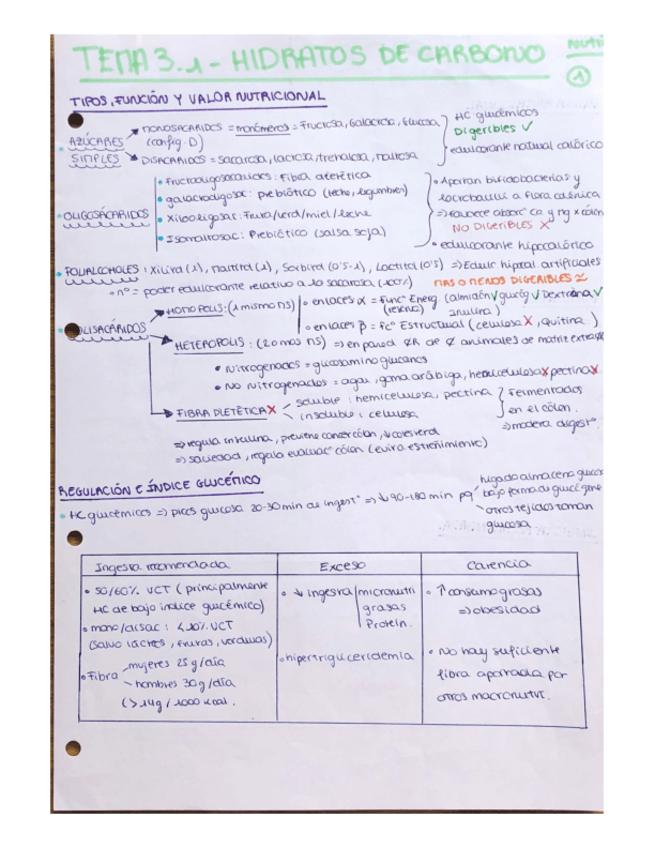 TEMA 3.1 - HIDRATOS DE CARBONO
Nutri
1
TIPOS, FUNCIÓN Y VALOR NUTRICIONAL
AZÚCARES SIMPLES
MONOSACÁRIDOS = monómeros = Fructosa, Galactosa, Glucosa
(config. D)
DISACÁRIDOS = sacarosa, lactosa, trehalosa, maltosa
HC glucémicos
Digeribles ✓
edulcorante natural calórico
OLIGOSÁCARIDOS
• Fructooligosacáridos: Fibra dietética
• galactooligosac: prebiótico (leche, legumbres)
• Xilooligosac: Fruta/verd/miel/leche
• Isomaltosac: Prebiótico (salsa soja)
• Aportan bifidobacterias y
lactobacilli a flora colónica
⇒ Favorece absorc° Ca y Mg x colon
NO DIGERIBLES X
• edulcorante hipocalórico
• POLIALCOHOLES: Xilitol (1), maltitol (1), Sorbitol (0'5-1), Lactitol (0'5) ⇒ Edulc hipocal. artificiales
• nº = poder edulcorante relativo a la sacarosa (100%)
MAS O MENOS DIGERIBLES ≃
POLISACÁRIDOS
HOMOPOLIS: (1 mismo ms)
• enlaces α = Func° Energ. (almidón ✓ glucóg ✓ Dextrana ✓
(reserva) inulina)
• enlaces β = Fc° Estructual (celulosa X, quitina)
HETEROPOLIS: (≥ 2 mos ms) ⇒ en pared
animales de matriz extrac
• Nitrogenados = glucosaminoglucanos
• No Nitrogenados = agar, goma arábiga, hemicelulosa X pectina X
FIBRA DIETÉTICA X
soluble: hemicelulosa, pectina
insoluble: celulosa
Fermentados
en el cólon.
⇒ modera digest°.
⇒ regula insulina, previene cancer cólon, ↓ colesterol
⇒ saciedad, regula evacuac° cólon (evita estreñimiento)
REGULACIÓN E ÍNDICE GLUCÉMICO
• HC glucémicos ⇒ picos glucosa 20-30 min de ingest° ⇒ ↓ 90-180 min pq'
hígado almacena glucos
bajo forma de glucógeno
otros tejidos toman
glucosa
Ingesta recomendada
• 50/60% VCT (principalmente
HC de bajo índice glucémico)
• mono/disac: < 10% VCT
(salvo lácteos, frutas, verduras)
• Fibra
mujeres 25 g/día
hombres 30 g/día
(> 14g / 1000 kcal.
Exceso
• ↓ ingesta
micronutri
grasas
Protein.
• hipertrigliceridemia
Carencia
• ↑ consumo grasas
⇒ obesidad
• No hay suficiente
fibra aportada por
otros macronutr.